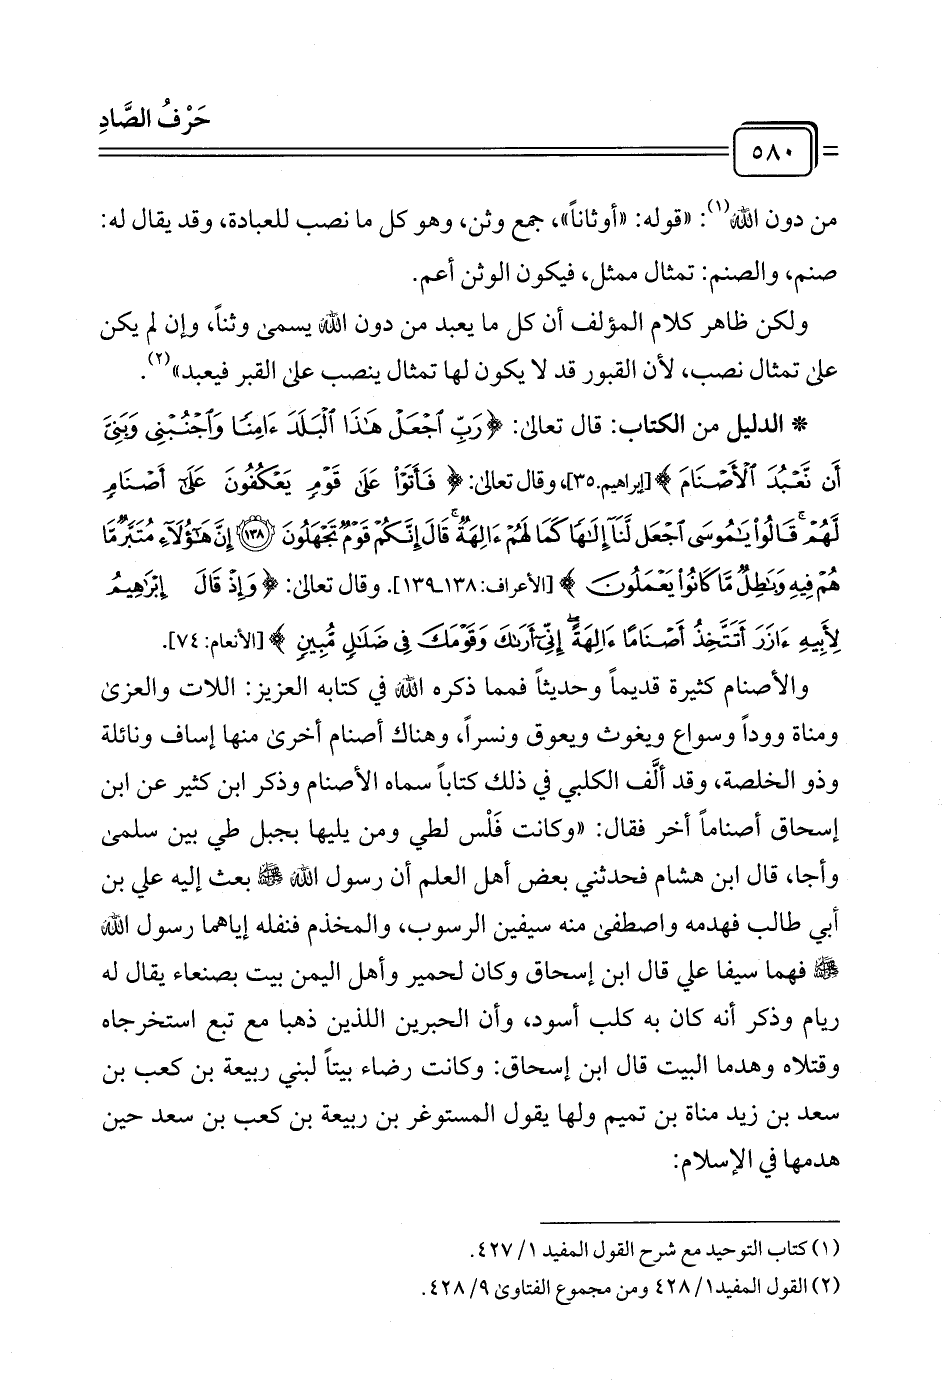 حَرْفُ الصَّادِ
٥٨٠
من دون الله(١): «قوله: «أوثاناً»، جمع وثن، وهو كل ما نصب للعبادة، وقد يقال له:
صنم، والصنم: تمثال ممثل، فيكون الوثن أعم.
ولكن ظاهر كلام المؤلف أن كل ما يعبد من دون الله يسمى وثناً، وإن لم يكن
على تمثال نصب، لأن القبور قد لا يكون لها تمثال ينصب على القبر فيعبد»(٢).
* الدليل من الكتاب: قال تعالى: ﴿ رَبِّ ٱجْعَلْ هَٰذَا ٱلْبَلَدَ ءَامِنًا وَٱجْنُبْنِى وَبَنِىَّ
أَن نَّعْبُدَ ٱلْأَصْنَامَ ﴾ [إبراهيم.٣٥]، وقال تعالى: ﴿ فَأَتَوْا۟ عَلَىٰ قَوْمٍ يَعْكُفُونَ عَلَىٰٓ أَصْنَامٍ
لَّهُمْ ۚ قَالُوا۟ يَٰمُوسَى ٱجْعَل لَّنَآ إِلَٰهًا كَمَا لَهُمْ ءَالِهَةٌ ۚ قَالَ إِنَّكُمْ قَوْمٌ تَجْهَلُونَ ﴿١٣٨﴾ إِنَّ هَٰٓؤُلَآءِ مُتَبَّرٌ مَّا
هُمْ فِيهِ وَبَٰطِلٌ مَّا كَانُوا۟ يَعْمَلُونَ ﴾ [الأعراف: ١٣٨-١٣٩]. وقال تعالى: ﴿ وَإِذْ قَالَ إِبْرَٰهِيمُ
لِأَبِيهِ ءَازَرَ أَتَتَّخِذُ أَصْنَامًا ءَالِهَةً ۖ إِنِّىٓ أَرَىٰكَ وَقَوْمَكَ فِى ضَلَٰلٍ مُّبِينٍ ﴾ [الأنعام: ٧٤].
والأصنام كثيرة قديماً وحديثاً فمما ذكره الله في كتابه العزيز: اللات والعزى
ومناة ووداً وسواع ويغوث ويعوق ونسراً، وهناك أصنام أخرى منها إساف ونائلة
وذو الخلصة، وقد ألَّف الكلبي في ذلك كتاباً سماه الأصنام وذكر ابن كثير عن ابن
إسحاق أصناماً أخر فقال: «وكانت فَلْس لطي ومن يليها بجبل طي بين سلمى
وأجا، قال ابن هشام فحدثني بعض أهل العلم أن رسول الله ﷺ بعث إليه علي بن
أبي طالب فهدمه واصطفى منه سيفين الرسوب، والمخذم فنفله إياهما رسول الله
ﷺ فهما سيفا علي قال ابن إسحاق وكان لحمير وأهل اليمن بيت بصنعاء يقال له
ريام وذكر أنه كان به كلب أسود، وأن الحبرين اللذين ذهبا مع تبع استخرجاه
وقتلاه وهدما البيت قال ابن إسحاق: وكانت رضاء بيتاً لبني ربيعة بن كعب بن
سعد بن زيد مناة بن تميم ولها يقول المستوغر بن ربيعة بن كعب بن سعد حين
هدمها في الإسلام:
(١) كتاب التوحيد مع شرح القول المفيد ١/ ٤٢٧.
(٢) القول المفيد١/ ٤٢٨ ومن مجموع الفتاوى ٩/ ٤٢٨.